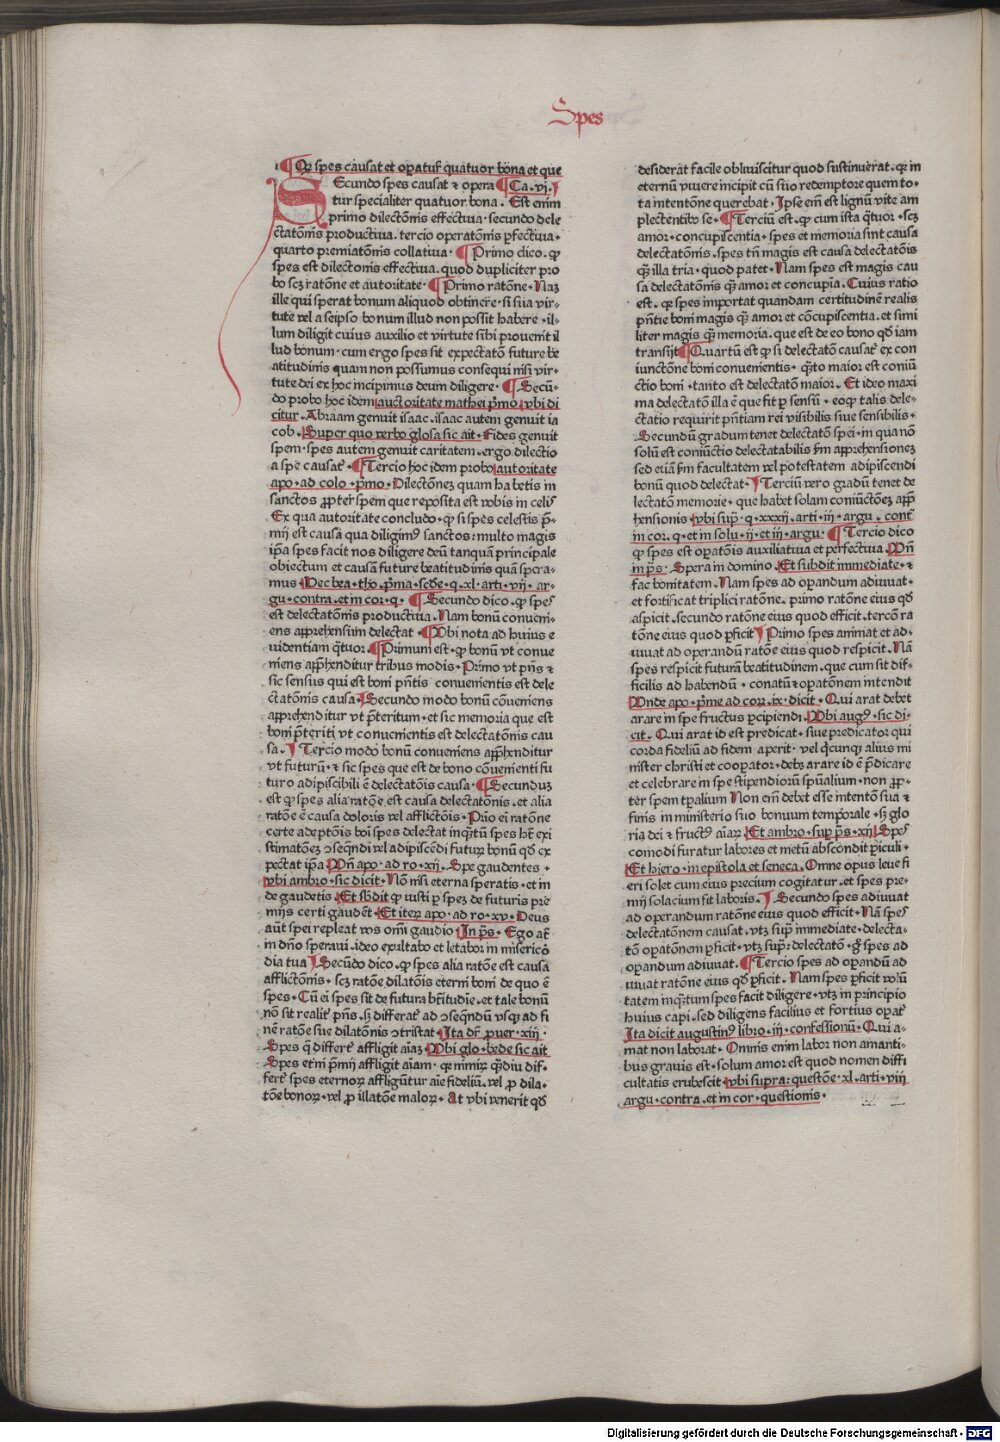 Spes
¶ Qp spes causat et opatur quatuor bona et que
Secundo spes causat ⁊ opera ¶ Ca·vj·
tur specialiter quatuor bona· Est enim
primo dilectōnis effectiua· secundo dele
ctatōnis productiua· tercio operatōnis pfectiua·
quarto premiatōnis collatiua· ¶ Primo dico· qp
spes est dilectonis effectiua· quod dupliciter pro
bo scz ratōne et autoritate· ¶ Primo ratōne· Naz
ille qui sperat bonum aliquod obtinere· si sua vir-
tute vel a seipso bonum illud non possit habere· il-
lum diligit cuius auxilio et virtute sibi prouenit il
lud bonum· cum ergo spes sit expectatō future be
atitudinis quam non possumus consequi nisi vir-
tute dei ex hoc incipimus deum diligere· ¶ Secū-
do probo hoc idem auctoritate mathei pmo· vbi di
citur· Abraam genuit isaac· isaac autem genuit ia
cob· Super quo verbo glosa sic ait· Fides genuit
spem· spes autem genuit caritatem· ergo dilectio
a spe causat· ¶ Tercio hoc idem probo autoritate
apo· ad colo· pmo· Dilectōnez quam habetis in
sanctos ppter spem que reposita est vobis in celis
Ex qua autoritate concludo· qp si spes celestis p̄-
mij est causa qua diligim⁹ sanctos: multo magis
ipa spes facit nos diligere deū tanquā principale
obiectum et causā future beatitudinis quā spera-
mus Hec bea· tho· pma· scde· q· xl· arti· vij· ar-
gu· contra· et in cor· q· ¶ Secundo dico· qp spes
est delectatōnis productiua· Nam bonū conueni-
ens apprehensum delectat· ¶ Vbi nota ad huius e
uidentiam qtuor· ¶ Primum est· qp bonū vt conue
niens appħenditur tribus modis· Primo vt pn̄s ⁊
sic sensus qui est boni pn̄tis conuenientis est dele
ctatōnis causa· Secundo modo bonū cōueniens
apprehenditur vt pteritum· et sic memoria que est
boni pteriti vt conuenientis est delectatōnis cau
sa· Tercio modo bonū conueniens appħenditur
vt futurū· ⁊ sic spes que est de bono cōuenienti fu
turo adipiscibili ē delectatōis causa· ¶ Secunduz
est qp spes alia ratōne est causa delectatōnis· et alia
ratōne ē causa doloris vel afflictōis· Prīo ei ratōne
certe adeptōnis boi spes delectat inqtū spes ht exi
stimatōez ɔseqndi vel adipiscēdi futur bonū qd ex
pectat ipa Vn̄ apo· ad ro· xij· Spe gaudentes·
vbi ambro· sic dicit· Nō nisi eterna speratis· et in
de gaudetis· Et sbdit qp iusti p spez de futuris pre
mijs certi gaudēt· Et iterz apo· ad ro· xv· Deus
aūt spei repleat vos omi gaudio In ps· Ego at
in dn̄o speraui· ideo exultabo et letabor in misericō
dia tua Secūdo dico· qp spes alia ratōe est causa
afflictōnis· scz ratōne dilatōis eterni boni de quo ē
spes· Cū ei spes sit de futura btitudie· et tale bonū
nō sit realit pn̄s· sz differat ad ɔseqndū vsqz ad fi
nē ratōne siue dilatōnis ɔtristat Ita dr puer· xiij·
Spes q differt affligit aiaz Vbi glo· bede sic ait
Spes etni pmij affligit aiam· qp nimiz qdiu dif-
fert spes eternor affligūtur aie fideliū· vel p dila-
tōe bonor· vel p illatōe malor· At vbi venerit qd
desiderat facile obliuiscitur quod sustinuerat· qp in
eternū viuere incipit cū suo redemptore quem to-
ta intentōne querebat· Ipse em est lignū vite am
plectentibo se· ¶ Terciū est· qp cum ista qtuor· scz
amor· concupiscentia· spes et memoria sint causa
delectatōnis· spes tn̄ magis est causa delectatōis
qz illa tria· quod patet· Nam spes est magis cau
sa delectatōnis qz amor et concupia· Cuius ratio
est· qp spes importat quandam certitudinē realis
pn̄tie boni magis qz amor et cōcupiscentia· et simi
liter magis qz memoria· que est de eo bono qd iam
transijt ¶ Quartū est qp si delectatō causat ex con
iunctōne boni conuenientis· qto maior est coniū
ctio boni· tanto est delectatō maior· Et ideo maxi
ma delectatō illa ē que fit p sensū· eo qp talis dele-
ctatio requirit pn̄tiam rei visibilis siue sensibilis·
Secundū gradum tenet delectatō spei· in qua nō
solū est coniūctio delectabilis fm apprehensionez
sed etiā fm facultatem vel potestatem adipiscendi
bonū quod delectat· Terciū vero gradū tenet de
lectatō memorie· que habet solam coniūctōez app
hensionis vbi sup· q· xxxij· arti· iij· argu· cont
in cor· q· et in solu· ij· et iij· argu· ¶ Tercio dico
qp spes est opatōis auxiliatiua et perfectiua· Vn̄
in ps· Spera in domino· Et subdit immediate· ⁊
fac bonitatem· Nam spes ad opandum adiuuat·
et fortificat triplici ratōne· primo ratōne eius qd
aspicit· secundo ratōne eius quod efficit· tercō ra
tōne eius quod pficit Primo spes animat et ad-
iuuat ad operandū ratōe eius quod respicit· Nā
spes respicit futurā beatitudinem· que cum sit dif-
ficilis ad habendū· conatū ⁊ opatōnem intendit
Vnde apo· pme ad cor· ix· dicit· Qui arat debet
arare in spe fructus pcipiendi· Vbi aug⁹· sic di-
cit· Qui arat id est predicat· siue predicator qui
corda fideliū ad fidem aperit· vel qcunqz alius mi
nister christi et coopator· debz arare id ē pdicare
et celebrare in spe stipendiorū spūalium· non pp-
ter spem tpalium Non em debet esse intentō sua ⁊
finis in ministerio suo bonuum temporale· sz glo
ria dei ⁊ fruct⁹ aiar· Et ambro· sup ps· xij Spes
comodi furatur labores et metū abscondit piculi·
Et hiero· in epistola et seneca· Omne opus leue fi
eri solet cum eius precium cogitatur· et spes pre-
mij solacium sit laboris· Secundo spes adiuuat
ad operandum ratōne eius quod efficit· Nā spes
delectatōnem causat· vtz sup immediate· delecta-
tō opatōnem pficit· vtz sup: delectatō· g spes ad
opandum adiuuat· ¶ Tercio spes ad opandū ad
iuuat ratōne eius qd pficit· Nam spes pficit volū
tatem inqtum spes facit diligere· vtz in principio
huius capi· sed diligens facilius et fortius opat
Ita dicit augustin⁹ libro· iij· confessionū· Qui a-
mat non laborat· Omnis enim labor non amanti-
bus grauis est· solum amor est quod nomen diffi
cultatis erubescit· vbi supra: questōe· xl· arti· viij
argu· contra· et in cor· questionis·
Digitalisierung gefördert durch die Deutsche Forschungsgemeinschaft - DFG